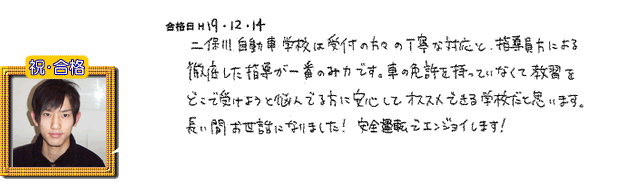 祝・合格
合格日 H 19・12・14
二俣川自動車学校は受付の方々の丁寧な対応と、指導員方による
徹底した指導が一番のみ力です。車の免許を持っていなくて教習を
どこで受けようと悩んでる方に安心してオススメできる学校だと思います。
長い間お世話になりました！安全運転でエンジョイします！